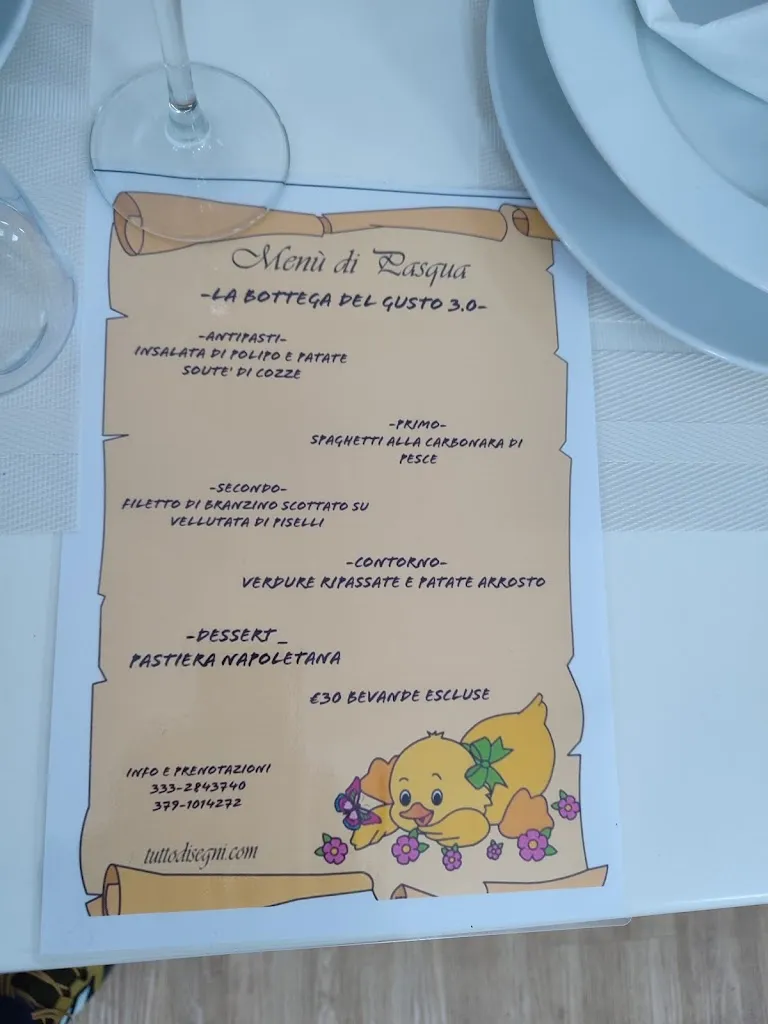 Menù di Pasqua
-LA BOTTEGA DEL GUSTO 3.0-
-ANTIPASTI-
INSALATA DI POLIPO E PATATE
SOUTE' DI COZZE
-PRIMO-
SPAGHETTI ALLA CARBONARA DI
PESCE
-SECONDO-
FILETTO DI BRANZINO SCOTTATO SU
VELLUTATA DI PISELLI
-CONTORNO-
VERDURE RIPASSATE E PATATE ARROSTO
-DESSERT_
PASTIERA NAPOLETANA
€30 BEVANDE ESCLUSE
INFO E PRENOTAZIONI
333-2843740
379-1014272
tuttodisegni.com